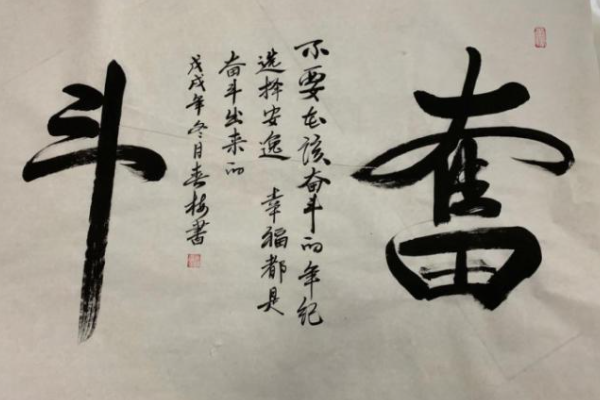 奮
不要在该奋斗的年纪
选择安逸 幸福都是
奋斗出来的
戊戌年冬月春梅書
斗